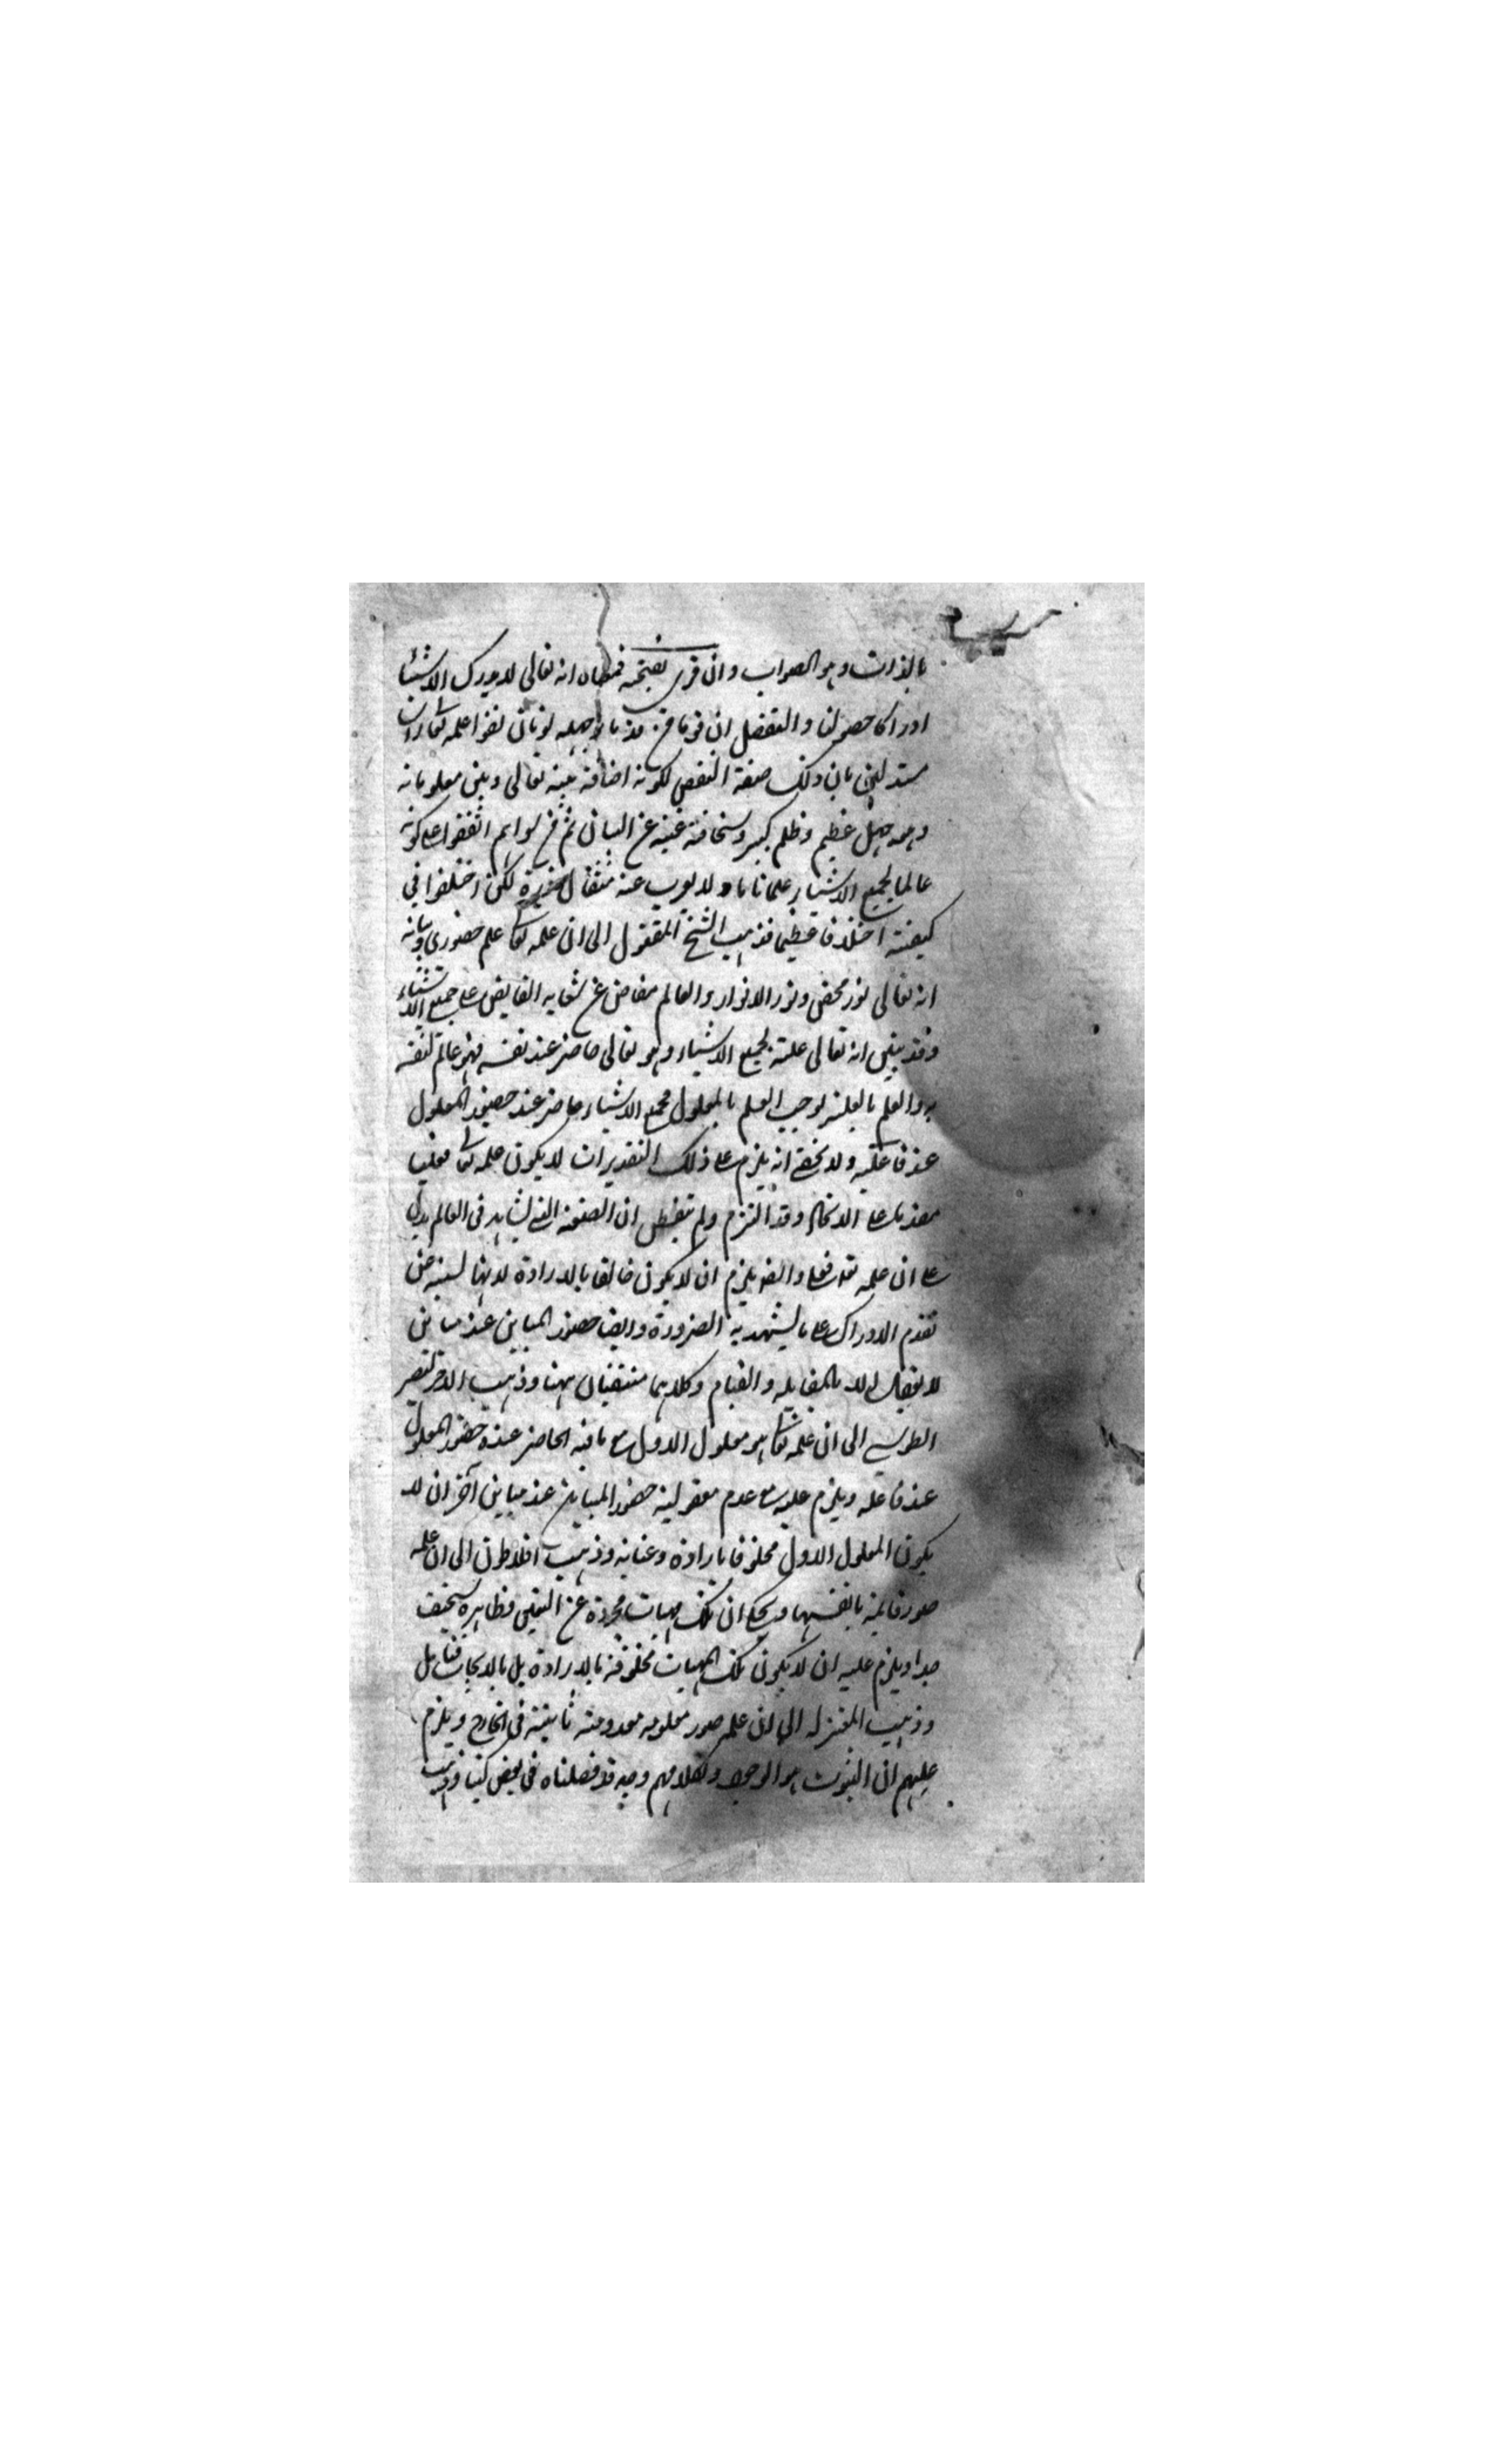 بالذات وهو الصواب وان قرئ بفتحه فمعناه انه تعالى لا يدرك الاشياء
ادراكا حصوليا والتفصيل ان قوما من يونان نفوا علمه تعالى
مستدلين بان ذلك صفة النقص لكونه اضافة بينه تعالى وبين معلوماته
وهو جهل عظيم وظلم كبير وسخافته غنية عن البيان ثم من سواهم اتفقوا على كونه
عالما لجميع الاشياء علما تاما ولا يعزب عنه مثقال ذرة لكن اختلفوا في
كيفيته اختلافا عظيما فذهب الشيخ المقتول الى ان علمه تعالى علم حضوري وبيانه
انه تعالى نور محض ونور الانوار والعالم مفاض عن الفايض على جميع الاشياء
وقد تبين انه تعالى علة لجميع الاشياء وهو تعالى حاضر عند نفسه فهو عالم لنفسه
به والعلم بالعلة يوجب العلم بالمعلول فجميع الاشياء حاضر عنده حضور المعلول
عند فاعليه ولا يخفى انه يلزم على ذلك التقدير ان لا يكون علمه تعالى فعليا
على الانكار وقد التزم ولم يتفطن ان الصنعة التي تشاهد في العالم يدل
على ان علمه تعالى فعلي وايضا يلزم ان لا يكون خالقا بالارادة لانها
تقدم الادراك على ما يشهد به الضرورة وايضا حضور المباين عند مباين
لا يعقل الا بالمقابلة والقيام وكلاهما منتفيان ههنا وذهب النصير
الطوسي الى ان علمه تعالى هو معلول الاول مع ما فيه الحاضر عنده حضور المعلول
عند فاعله ويلزم عليه مع عدم معقولية حضور المباين عند مباين آخر ان لا
يكون المعلول الاول مخلوقا بارادة وعناية وذهب افلاطون الى ان علمه
صور قايمة بانفسها ويحكى ان تلك مهيات مجردة عن التعين وظاهره سخيف
جدا ويلزم عليه ان لا يكون تلك المهيات مخلوقة بالارادة بل بالايجاب فتامل
وذهب المعتزلة الى ان علمه صور معلومة معدومة ثابتة في الخارج ويلزم
عليهم ان الثبوت هو الوجود ولكلامهم وجه قد فصلناه في بعض كتبنا وذهب